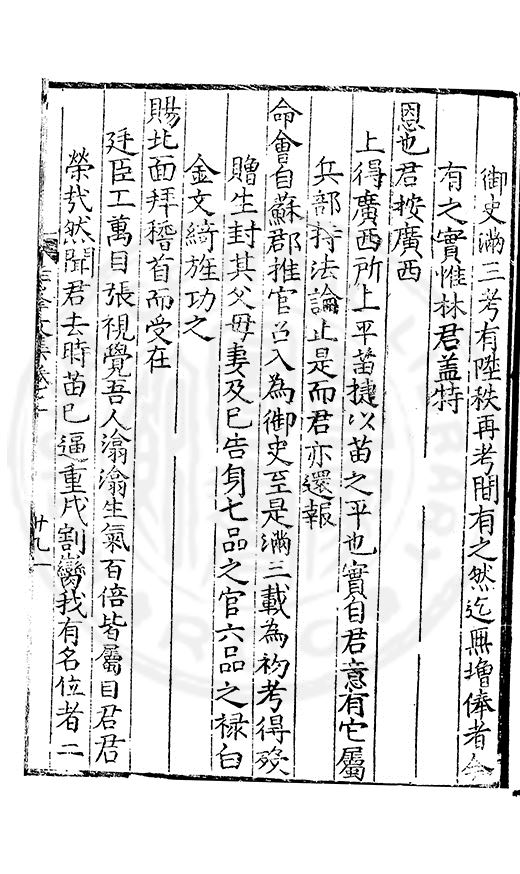 御史滿三考有陞秩再考間有之然迄無增俸者今
有之實惟林君盖特
恩也君按廣西
上得廣西所上平苗捷以苗之平也實自君意有它屬
兵部持法論止是而君亦還報
命會自蘇郡推官召入為御史至是滿三載為初考得
贈生封其父母妻及己告身七品之官六品之祿白
金文綺旌功之
賜北面拜稽首而受在
廷臣工萬目張視覺吾人滃滃生氣百倍皆屬目君君
榮哉然聞君去時苗已逼重戍割臠我有名位者二